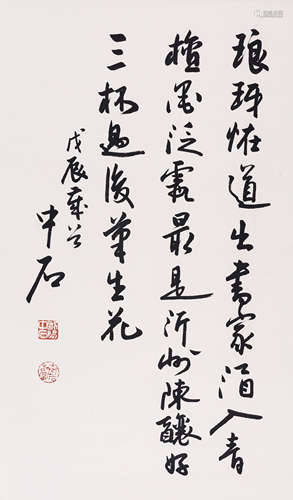 琅玡恠道出書家酒入青
檀墨泛霞最是沂州陳釀好
三杯過後筆生花
戊辰
中石